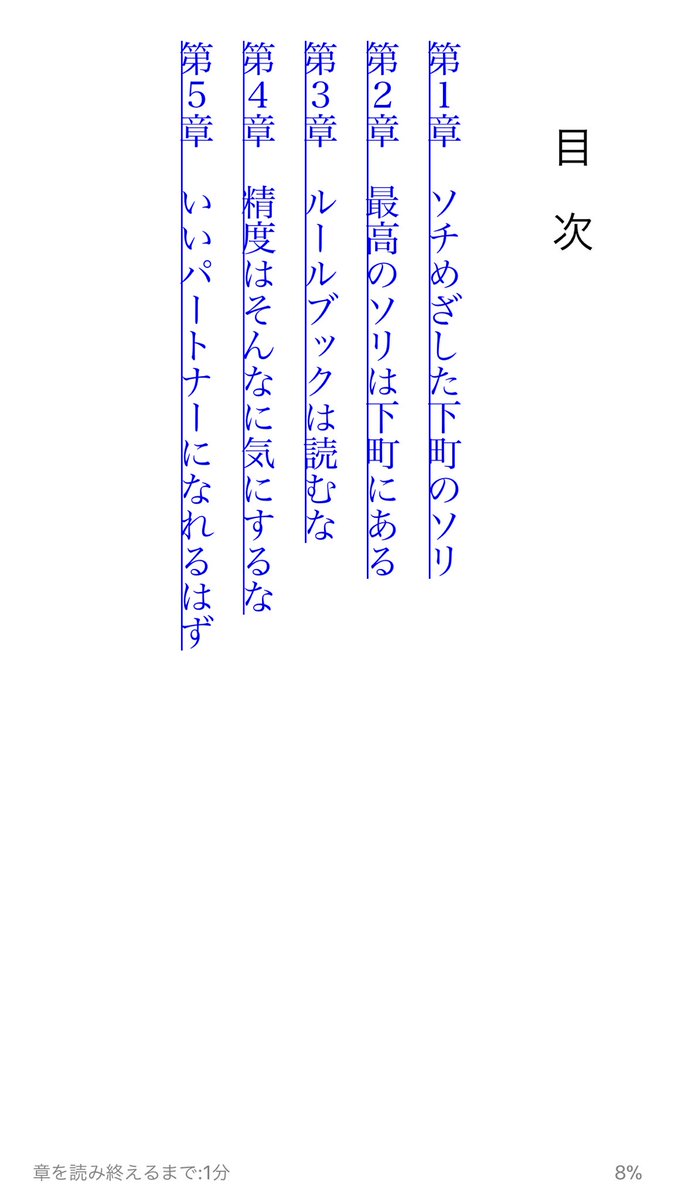 目次
第1章　ソチめざした下町のソリ
第2章　最高のソリは下町にある
第3章　ルールブックは読むな
第4章　精度はそんなに気にするな
第5章　いいパートナーになれるはず
章を読み終えるまで:1分
8%